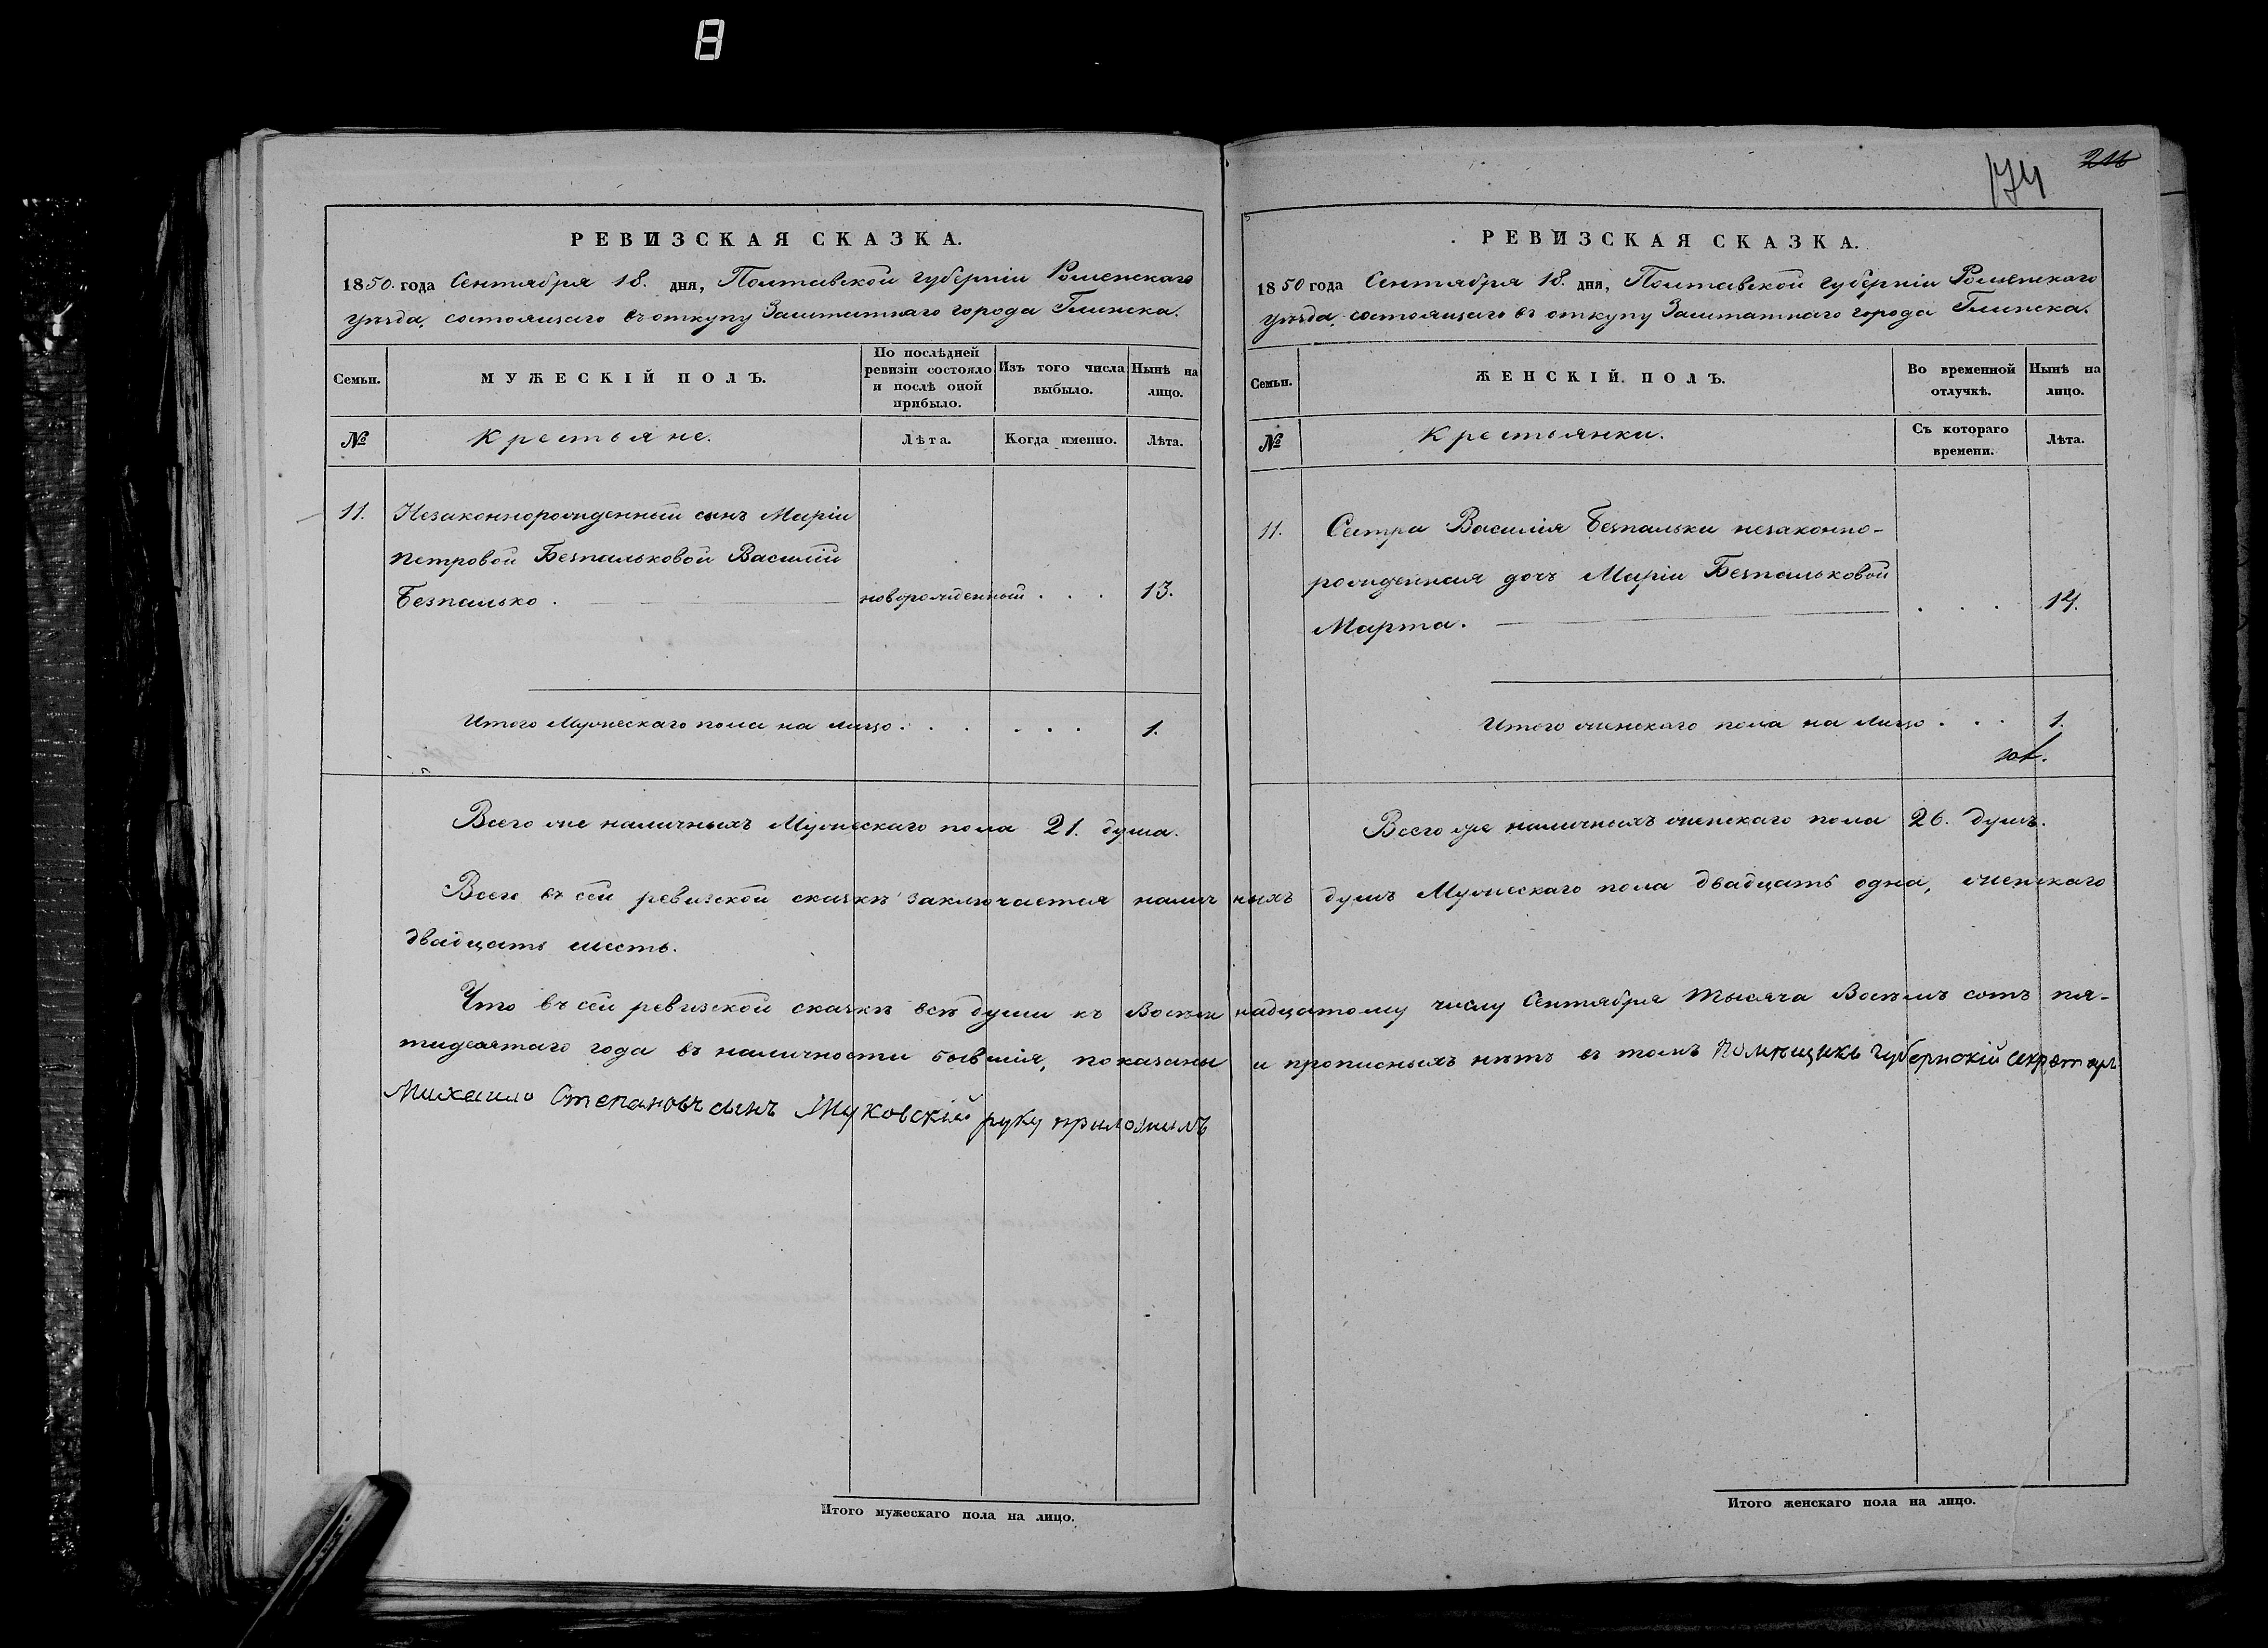 8
174
РЕВИЗСКАЯ СКАЗКА.
1850. года Сентября 18. дня, Полтавской губерніи Роменскаго
уѣзда, состоящаго въ откупу Заштатнаго города Глинска.
Семьи.
МУЖЕСКІЙ ПОЛЪ.
По послѣдней ревизіи состояло и послѣ оной прибыло.
Изъ того числа выбыло.
Нынѣ на лицо.
№
Крестьяне.
Лѣта.
Когда именно.
Лѣта.
11. Незаконнорожденный сынъ Маріи
Петровой Безпальковой Василій
Безпалько. новорожденный . . . 13.
Итого Мужескаго пола на лицо . . . . . . 1.
Всего же наличныхъ Мужескаго пола 21. душа.
РЕВИЗСКАЯ СКАЗКА.
1850 года Сентября 18. дня, Полтавской губерніи Роменскаго
уѣзда, состоящаго въ откупу Заштатнаго города Глинска.
Семьи.
ЖЕНСКІЙ ПОЛЪ.
Во временной отлучкѣ.
Нынѣ на лицо.
№
Крестьянки.
Съ котораго времени.
Лѣта.
11. Сестра Василія Безпальки незаконно-
рожденная дочь Маріи Безпальковой
Марта. . . . 14.
Итого женскаго пола на лицо . . . 1.
Всего же наличныхъ женскаго пола 26. душъ.
Всего въ сей ревизской сказкѣ заключается наличныхъ душъ Мужескаго пола двадцать одна, женскаго
двадцать шесть.
Что въ сей ревизской сказкѣ всѣ души къ Восемнадцатому числу Сентября тысяча Восемь сотъ пя-
тидесятаго года въ наличности бывшія, показаны и прописныхъ нѣтъ въ томъ Помѣщикъ Губернскій Секретарь
Михайло Степановъ сынъ Жуковскій руку приложилъ
Итого мужескаго пола на лицо.
Итого женскаго пола на лицо.